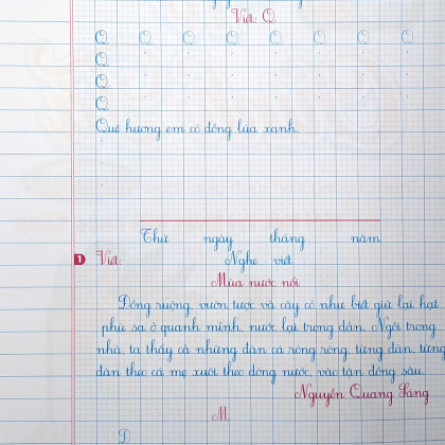 Viết: Q
Q Q Q Q Q Q Q Q
Q
Q
Q
Quê hương em có đồng lúa xanh.
Thứ ngày tháng năm
1 Viết: Nghe viết
Mùa nước nổi
Đồng ruộng, vườn tược và cây cỏ như biết giữ lại hạt
phù sa ở quanh mình, nước lại trong dần. Ngồi trong
nhà, ta thấy cả những đàn cá ròng ròng, từng đàn, từng
đàn theo cá mẹ xuôi theo dòng nước, vào tận đồng sâu.
Nguyễn Quang Sáng
M
Đ